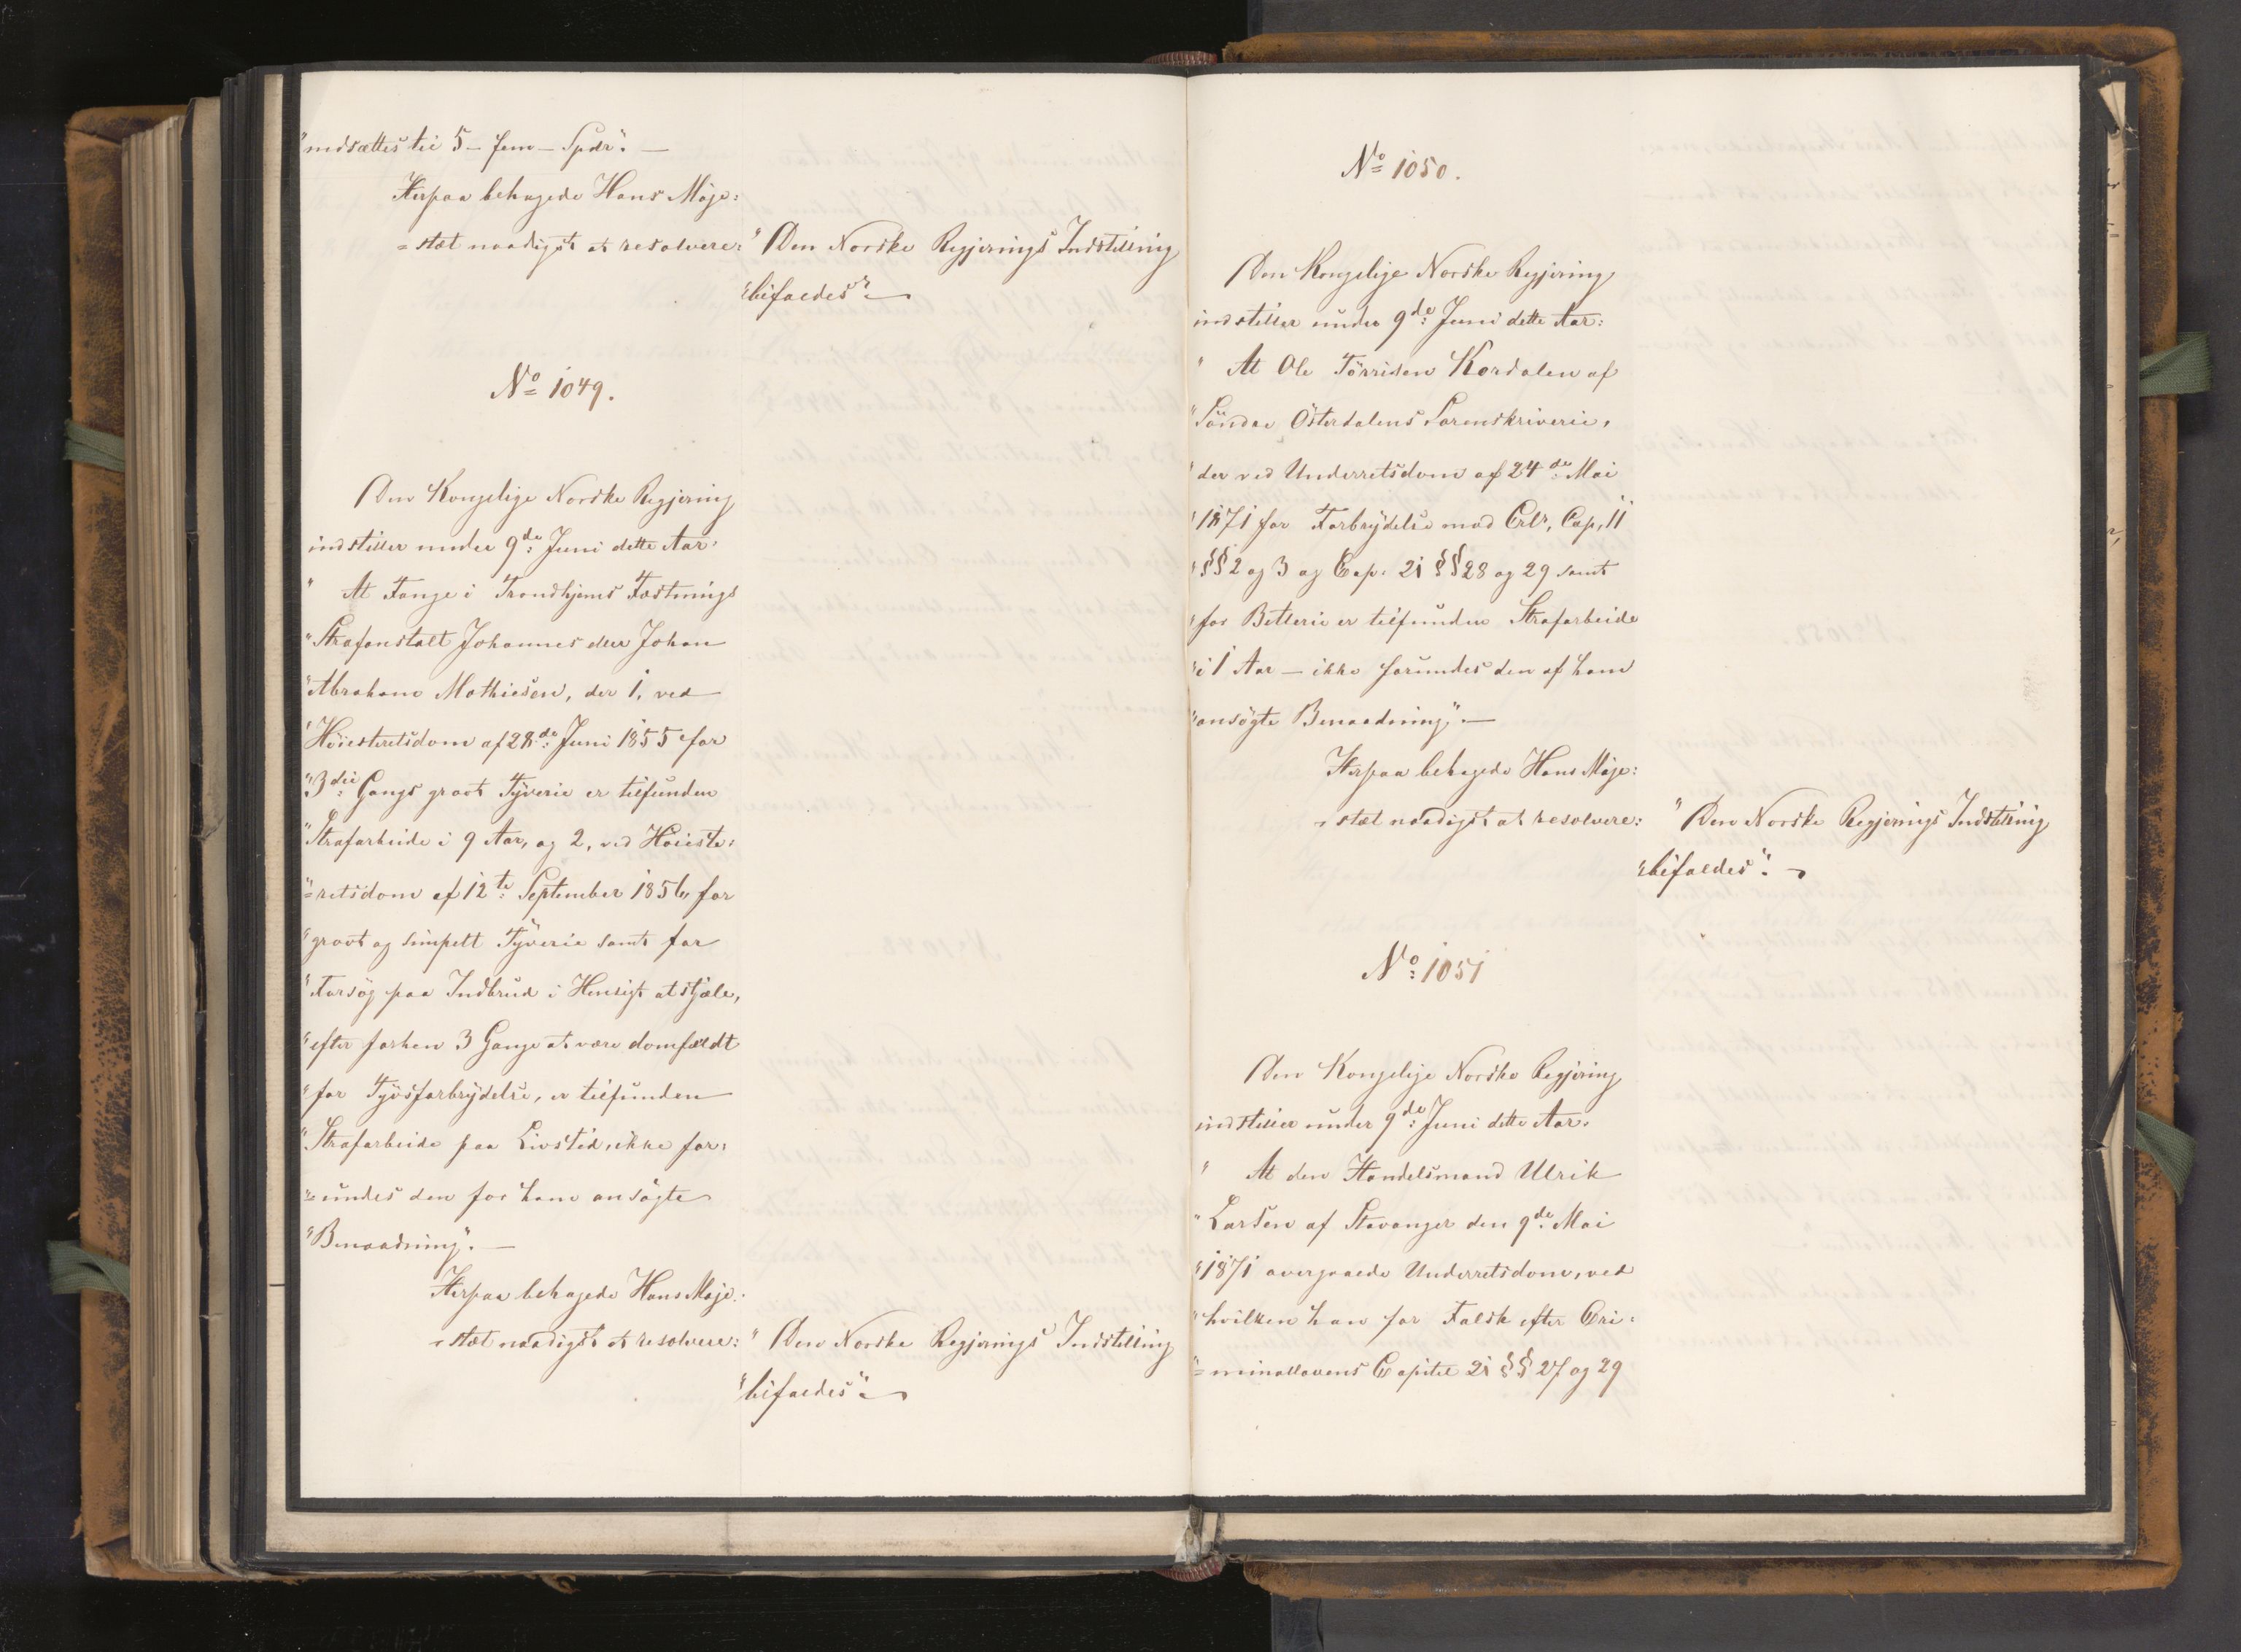 "nedsættes til 5 - fem - Spdr". —
Herpaa behagede Hans Maje=
=stæt naadigst at resolvere: "Den Norske Regjerings Indstilling
"bifaldes". —
No 1049.
Den Kongelige Norske Regjering
indstiller under 9de Juni dette Aar:
" At Fange i Trondhjems Fæstnings
"Strafanstalt Johannes eller Johan
"Abraham Mathiesen, der 1, ved
"Höiesteretsdom af 28de Juni 1855 for
"3die Gangs grovt Tyverie er tilfunden
"Strafarbeide i 9 Aar, og 2, ved Höieste=
"=retsdom af 12te September 1856 for
"grovt og simpelt Tyverie samt for
"Forsög paa Indbrud i Hensigt at stjæle,
"efter forhen 3 Gange at være domfældt
"for Tyvsforbrydelse, er tilfunden
"Strafarbeide paa Livstid, ikke for=
"=undes den for ham ansögte
"Benaadning". —
Herpaa behagede Hans Maje=
=stæt naadigst at resolvere: "Den Norske Regjerings Indstilling
"bifaldes". —
No 1050.
Den Kongelige Norske Regjering
indstiller under 9de Juni dette Aar:
" At Ole Törrisen Kordalen af
"Söndre Österdalens Sorenskriverie,
"der ved Underretsdom af 24de Mai
"1871 for Forbrydelse mod Crl., Cap. 11
"§§ 2 og 3 og Cap. 21 §§ 28 og 29 samt
"for Betlerie er tilfunden Strafarbeide
"i 1 Aar — ikke forundes den af ham
"ansögte Benaadning". —
Herpaa behagede Hans Maje=
=stæt naadigst at resolvere: "Den Norske Regjerings Indstilling
"bifaldes". —
No 1051
Den Kongelige Norske Regjering
indstiller under 9de Juni dette Aar:
" At den Handelsmand Ulrik
"Larsen af Stavanger den 9de Mai
"1871 overgaaede Underretsdom, ved
"hvilken han for Falsk efter Cri=
"=minallovens Capitel 21 §§ 27 og 29